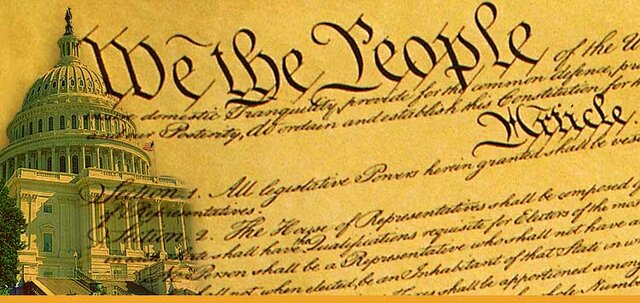 We the People of the U
domestic Tranquility, provide for the common defence, pro
our Posterity, do ordain and establish this Constitution for
Article.
Section. 1. All legislative Powers herein granted shall be vest
of Representatives.
Section. 2. The House of Representatives shall be composed
shall have the Qualifications requisite for Electors of the mo
Person shall be a Representative who shall not have
shall not, when elected, be an Inhabitant of that State in w
shall be apportioned among